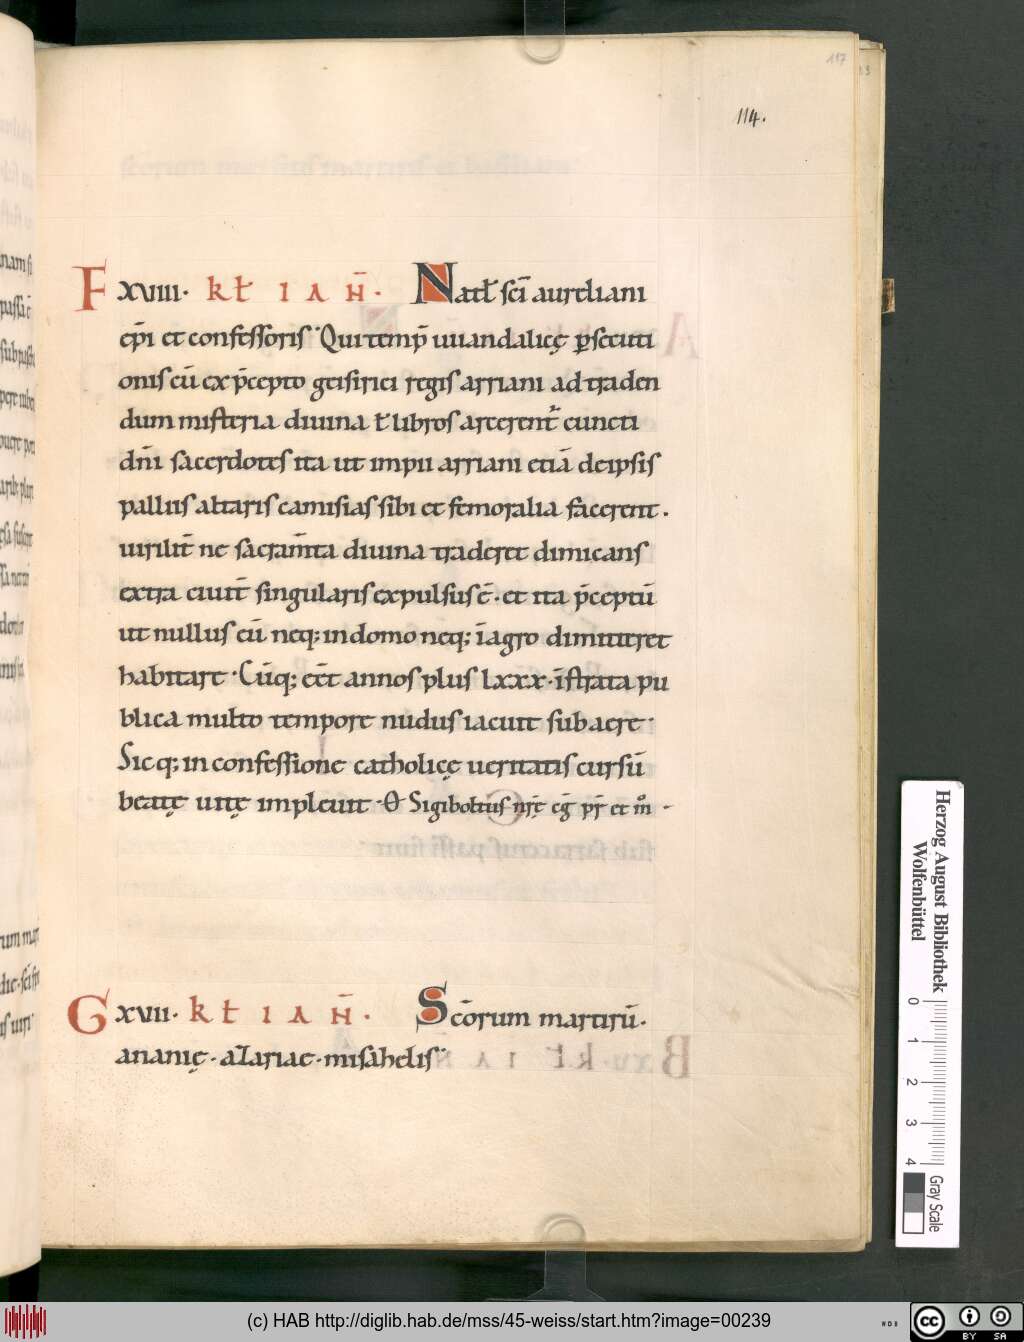 117
114.
F xviiii. kł IAN̄. Natł sc̄i aureliani
ep̄i et confessoris. Qui temp̄ uuandalicę ꝑsecuti
onis cū ex p̄cepto geisirici regis arriani ad traden
dum misteria diuina ł libros arcerent᷑ cuncti
dn̄i sacerdotes ita ut impii arriani etiā de ipsis
palliis altaris camisias sibi et femoralia facerent.
uirilit̄ ne sacram̄ta diuina traderet dimicans
extra ciuit̄ singularis expulsus ē. et ita p̄ceptū
ut nullus eū neq; in domo neq; īagro dimitteret
habitare. Cūq; eēt annos plus lxxx. īstrata pu
blica multo tempore nudus iacuit sub aere.
Sicq; in confessione catholicę ueritatis cursū
beatę uitę impleuit. Ꝋ Sigiboltus nr̄ę cḡ pr̄ et m̊
G xvii. kł IAN̄. Sc̄orum martirū.
ananię. azariae. misahelis.
Herzog August Bibliothek
Wolfenbüttel
0 1 2 3 4
Gray Scale
(c) HAB http://diglib.hab.de/mss/45-weiss/start.htm?image=00239
WDB
cc BY SA